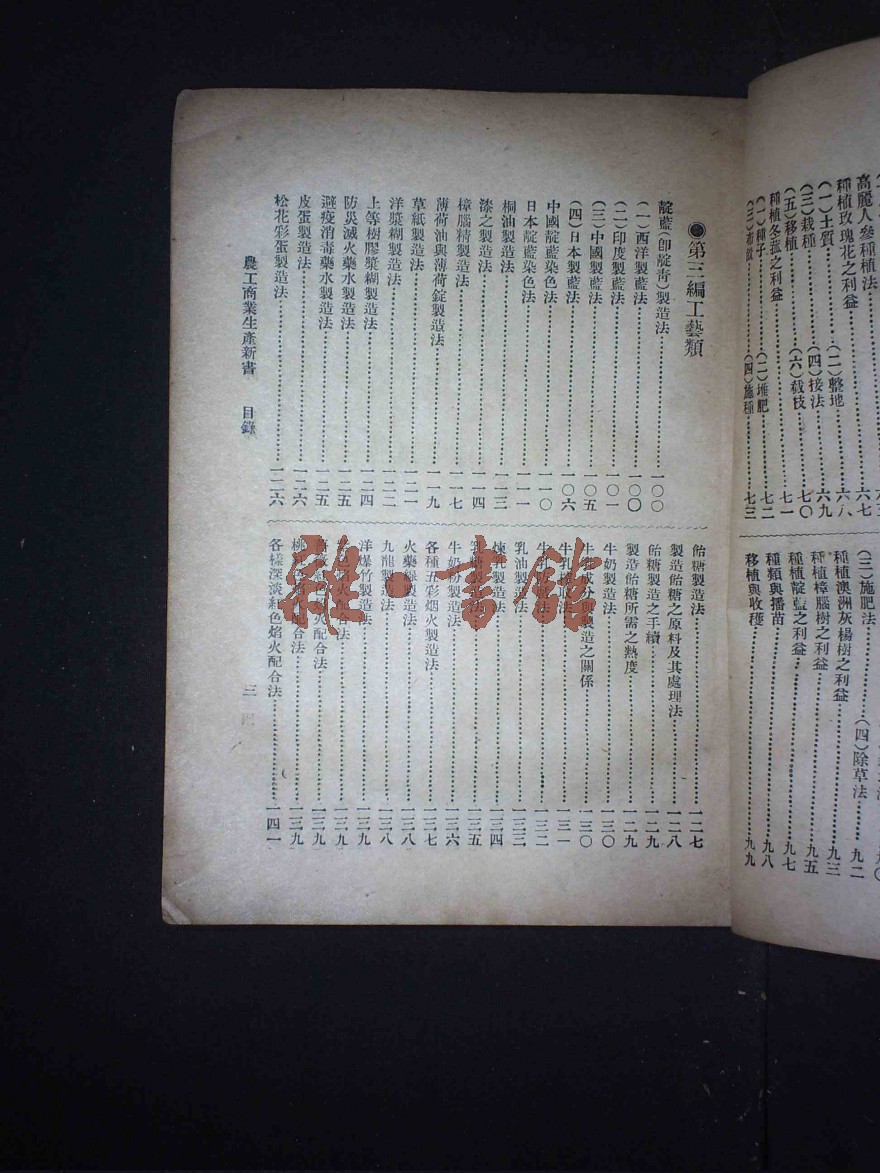 高麗人參種植法⋯⋯六七
種植玫瑰花之利益⋯⋯六八
(一)土質 (二)整地⋯⋯六九
(三)栽種 (四)接法⋯⋯七〇
(五)移植 (六)㪉技⋯⋯七一
種植冬菰之利益⋯⋯七二
(一)種子 (二)堆肥
(四)施種⋯⋯七三
(三)施肥法⋯⋯(四)除草法⋯⋯九二
種植澳洲灰楊樹之利益⋯⋯九三
種植樟腦樹之利益⋯⋯九五
種植靛藍之利益⋯⋯九七
種類與播苗⋯⋯九八
移植與收穫⋯⋯九九
●第三編工藝類
靛藍(卽靛靑)製造法⋯⋯一〇〇
(一)西洋製藍法⋯⋯一〇〇
(二)印度製藍法⋯⋯一〇一
(三)中國製藍法⋯⋯一〇五
(四)日本製藍法⋯⋯一〇六
中國靛藍染色法⋯⋯一一〇
日本靛藍染色法⋯⋯一一一
桐油製造法⋯⋯一一三
漆之製造法⋯⋯一一四
樟腦精製造法⋯⋯一一七
薄荷油與薄荷錠製造法⋯⋯一一九
草紙製造法⋯⋯一二一
洋漿糊製造法⋯⋯一二二
上等樹膠漿糊製造法⋯⋯一二四
防災滅火藥水製造法⋯⋯一二五
避疫消毒藥水製造法⋯⋯一二五
皮蛋製造法⋯⋯一二六
松花彩蛋製造法⋯⋯一二六
飴糖製造法⋯⋯一二七
製造飴糖之原料及其處理法⋯⋯一二八
飴糖製造之手續⋯⋯一二九
製造飴糖所需之熱度⋯⋯一二九
牛奶製造法⋯⋯一三〇
牛乳成分與製造之關係⋯⋯一三〇
牛乳搾收法⋯⋯一三一
牛乳法⋯⋯一三二
乳油製造法⋯⋯一三三
煉乳製造法⋯⋯一三四
乳糖製造法⋯⋯一三五
牛奶粉製造法⋯⋯一三六
各種五彩烟火製造法⋯⋯一三七
火藥線製造法⋯⋯一三八
九龍製造法⋯⋯一三八
洋爆竹製造法⋯⋯一三九
色火配合法⋯⋯一三九
紅色火配合法⋯⋯一三九
桃火配合法⋯⋯一三九
各樣深淡紅色焰火配合法⋯⋯一四一
農工商業生產新書 目錄
三
書·館